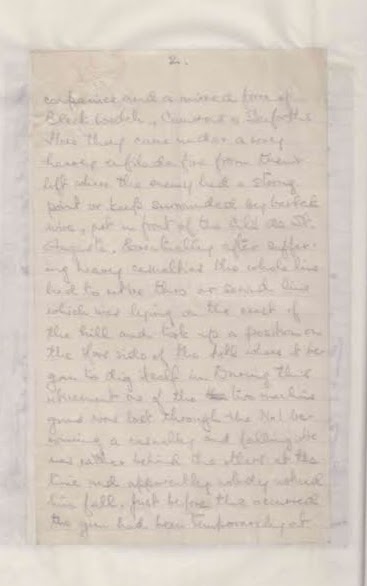 2.
companies and a mixed force of
Black Watch, Camerons & Seaforths
Here they came under a very
heavy enfilade fire from their
left where the enemy had a strong
point or keep surrounded by barbed
wire, just in front of the Cité St.
Auguste. Eventually after suffer-
ing heavy casualties the whole line
had to retire
which was lying on the crest of
the hill and took up a position on
the side of the hill where it be-
gan to dig itself in. During this
retirement one of the two machine
guns was lost through the No 1 be-
coming a casualty and falling. He
was rather behind the others at the
time and apparently nobody noticed
him fall. Just before this occurred
the gun had been temporarily